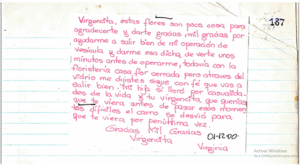 187
Virgencita, estas flores son poca cosa para
agradecerte y darte gracias, mil gracias por
ayudarme a salir bien de mi operación de
vesícula, y darme esa dicha de verte unos
minutos antes de operarme, todavía con la
floristería casa flor cerrada pero atraves del
vidrio me dijistes sigue con fé que vas a
salir bien. Tu hija si lloró por casualida-
des de la vida y tu virgencita, que querías
que te viera antes de pasar esos momen-
tos difíciles el carro se desvió para
que te viera por penúltima vez.
Gracias Gracias
Virgencita
01-12-00
Virginia
Activar Windows